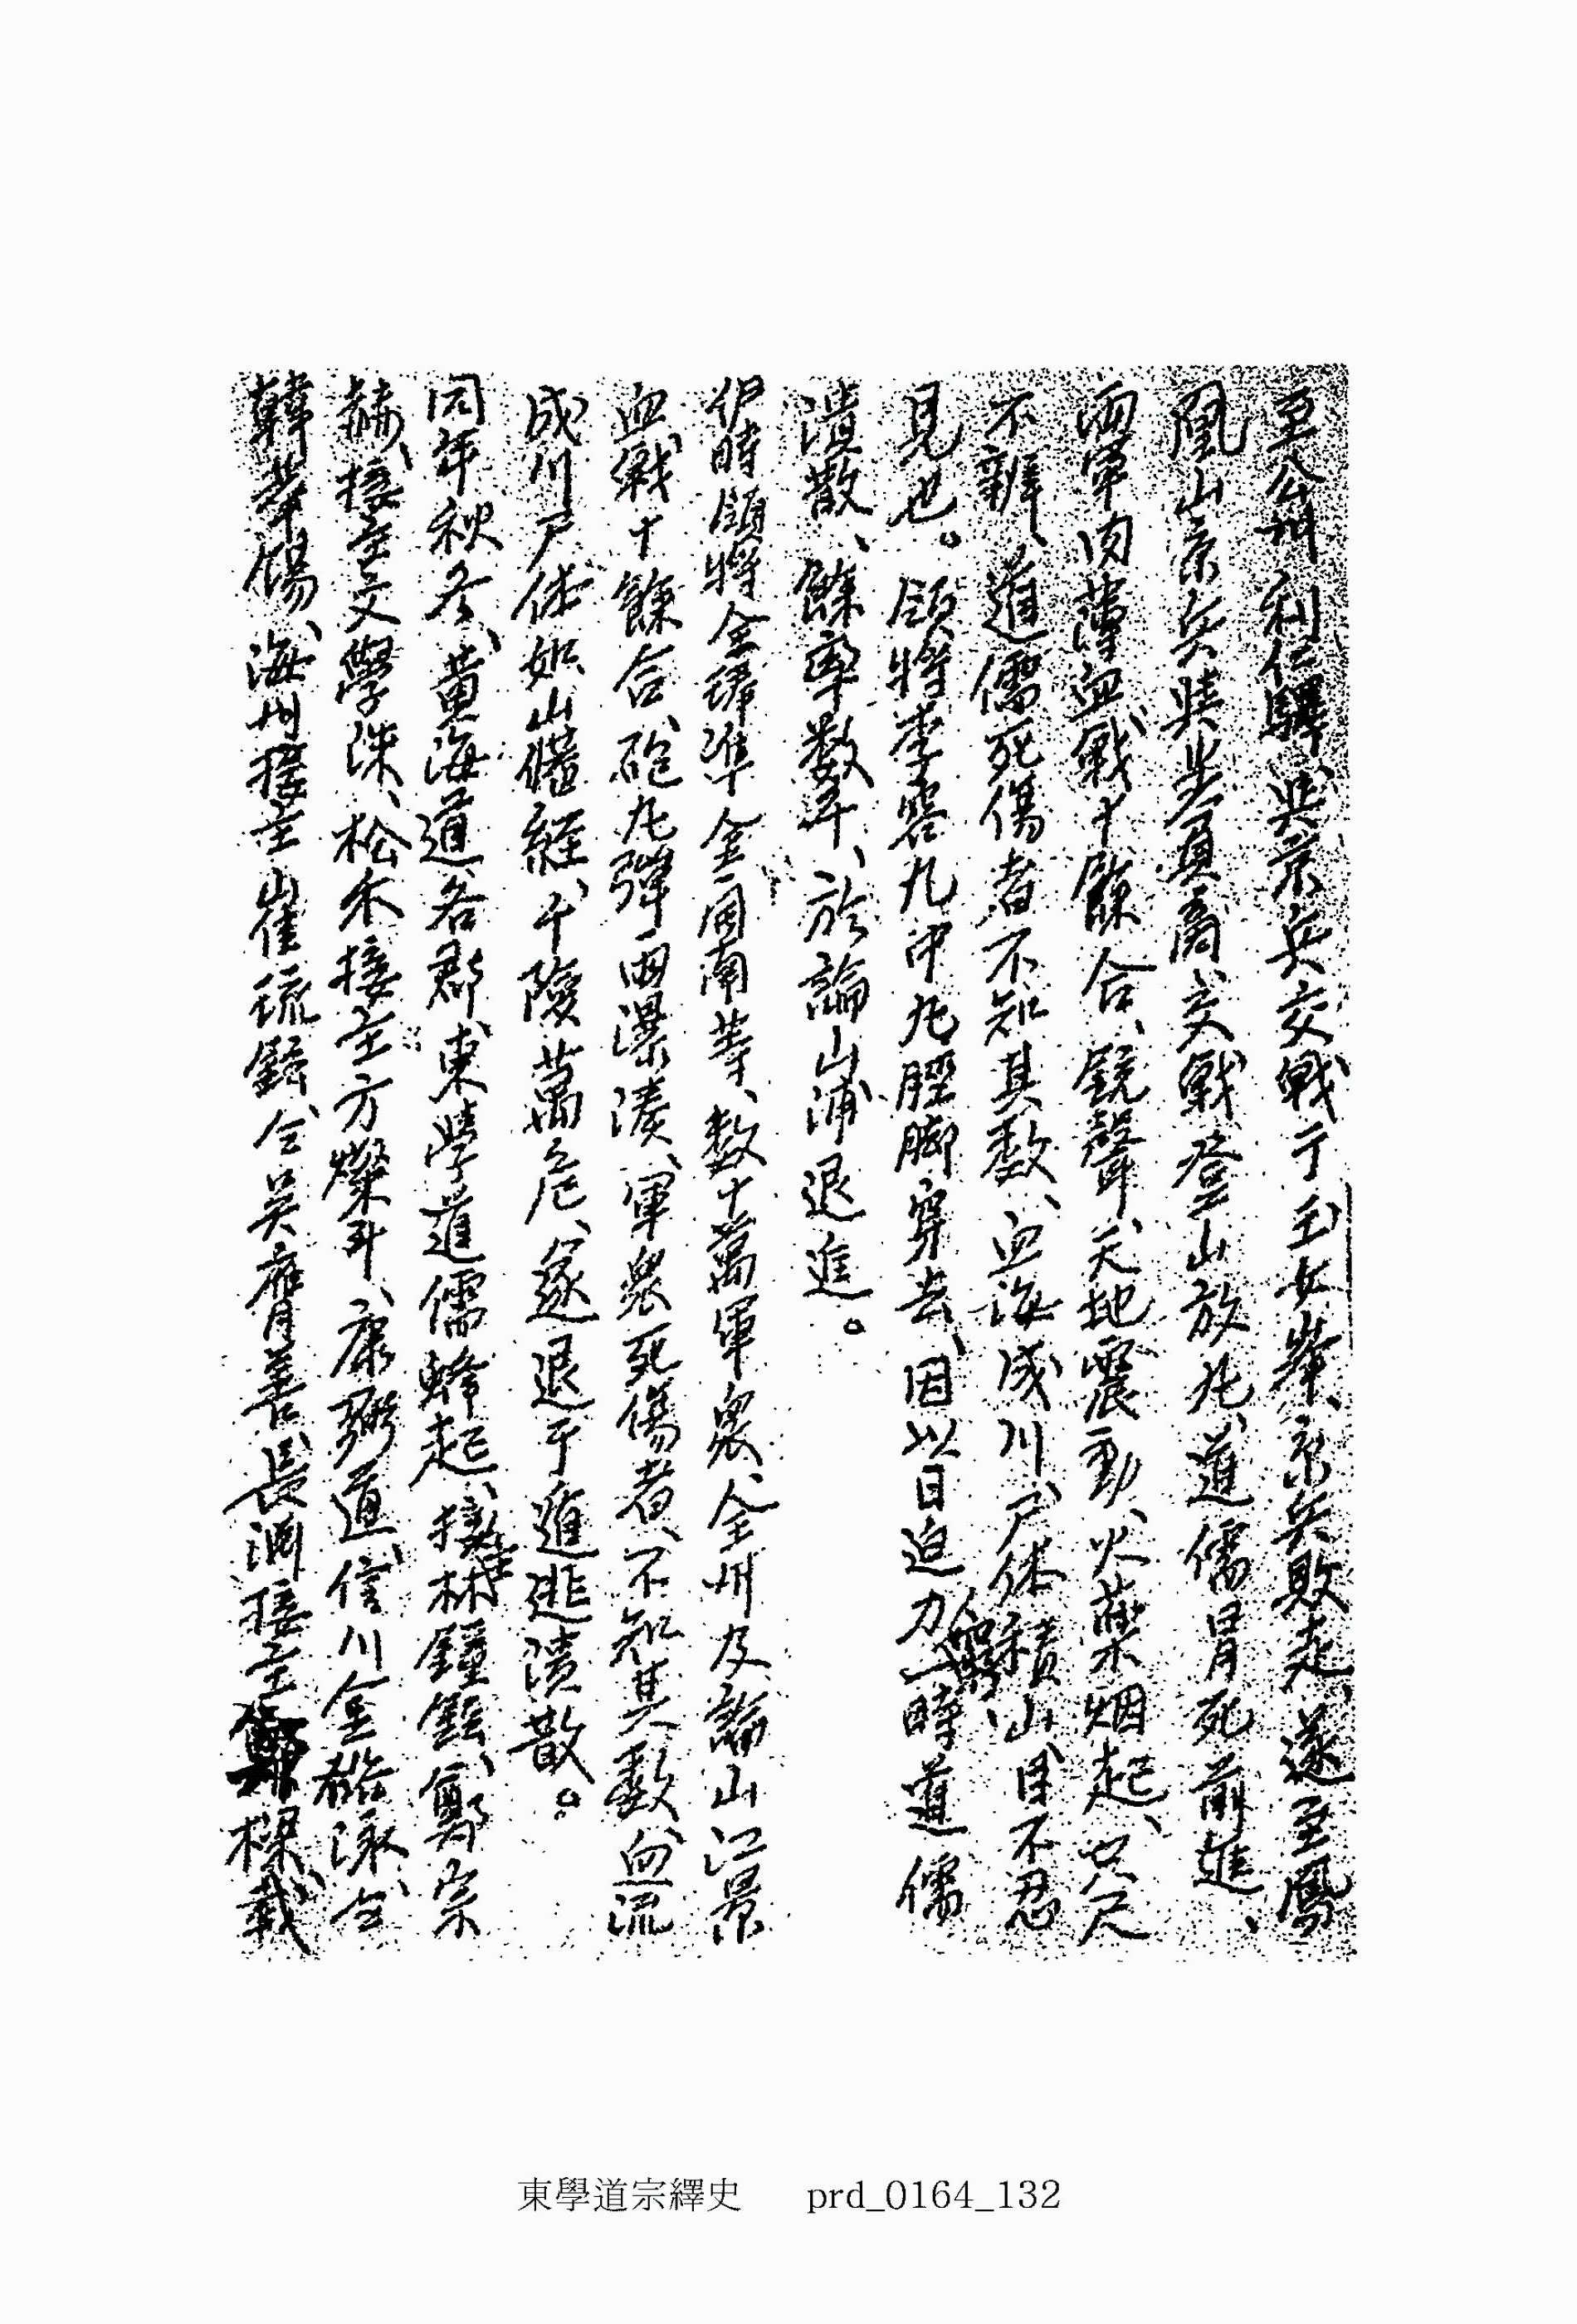 至公州利仁驛、與京兵交戰于玉女峯、京兵敗走、遂至鳳
凰山京兵與步負商交戰、登山放丸、道儒冒死前進、
兩軍肉薄血戰十餘合、銃聲天地震動、火藥烟起、咫尺
不辨、道儒死傷者不知其數、血海成川、尸体積山、目不忍
見也。領將李容九中丸脛脚穿去、因以日迫力窮一時道儒
潰散、餘率數千、於論山浦退進。
伊時領將全琫準金開南等、數十萬軍衆、全州及論山江景
血戰十餘合、砲丸彈雨瀑湊、軍衆死傷者、不知其數、血流
成川尸体如山備經、千險萬危、遂退于進逃潰散。
同年秋冬、黃海道各郡、東學道儒蜂起、接主林鍾鉉、鄭宗
赫、接主文學洙、松禾接主方燦斗、康弼道、信川金 泳、仝
韓華錫、海州接主崔琉鉉、仝吳膺善、長淵接主鄭樑、載
東學道宗繹史 prd_0164_132